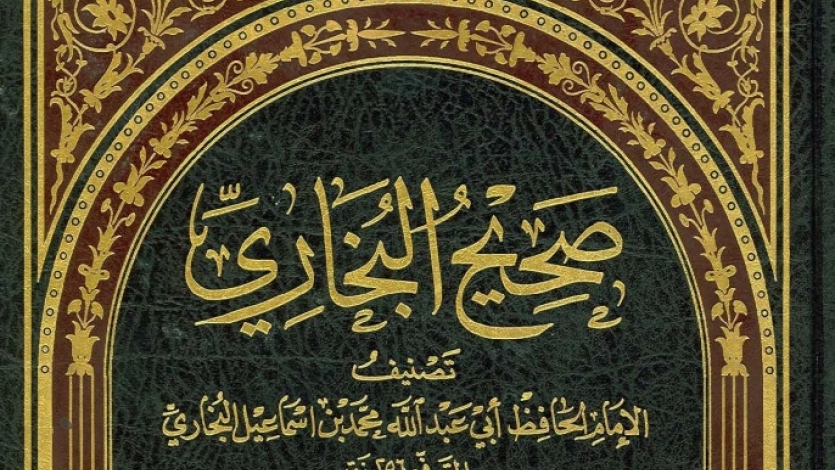 صَحِيحُ البُخَارِيِّ
تَصْنِيفُ
الإِمَامِ الحَافِظِ أَبِي عَبْدِ اللَّهِ مُحَمَّد بْن اسْمَاعِيل البُخَارِيّ